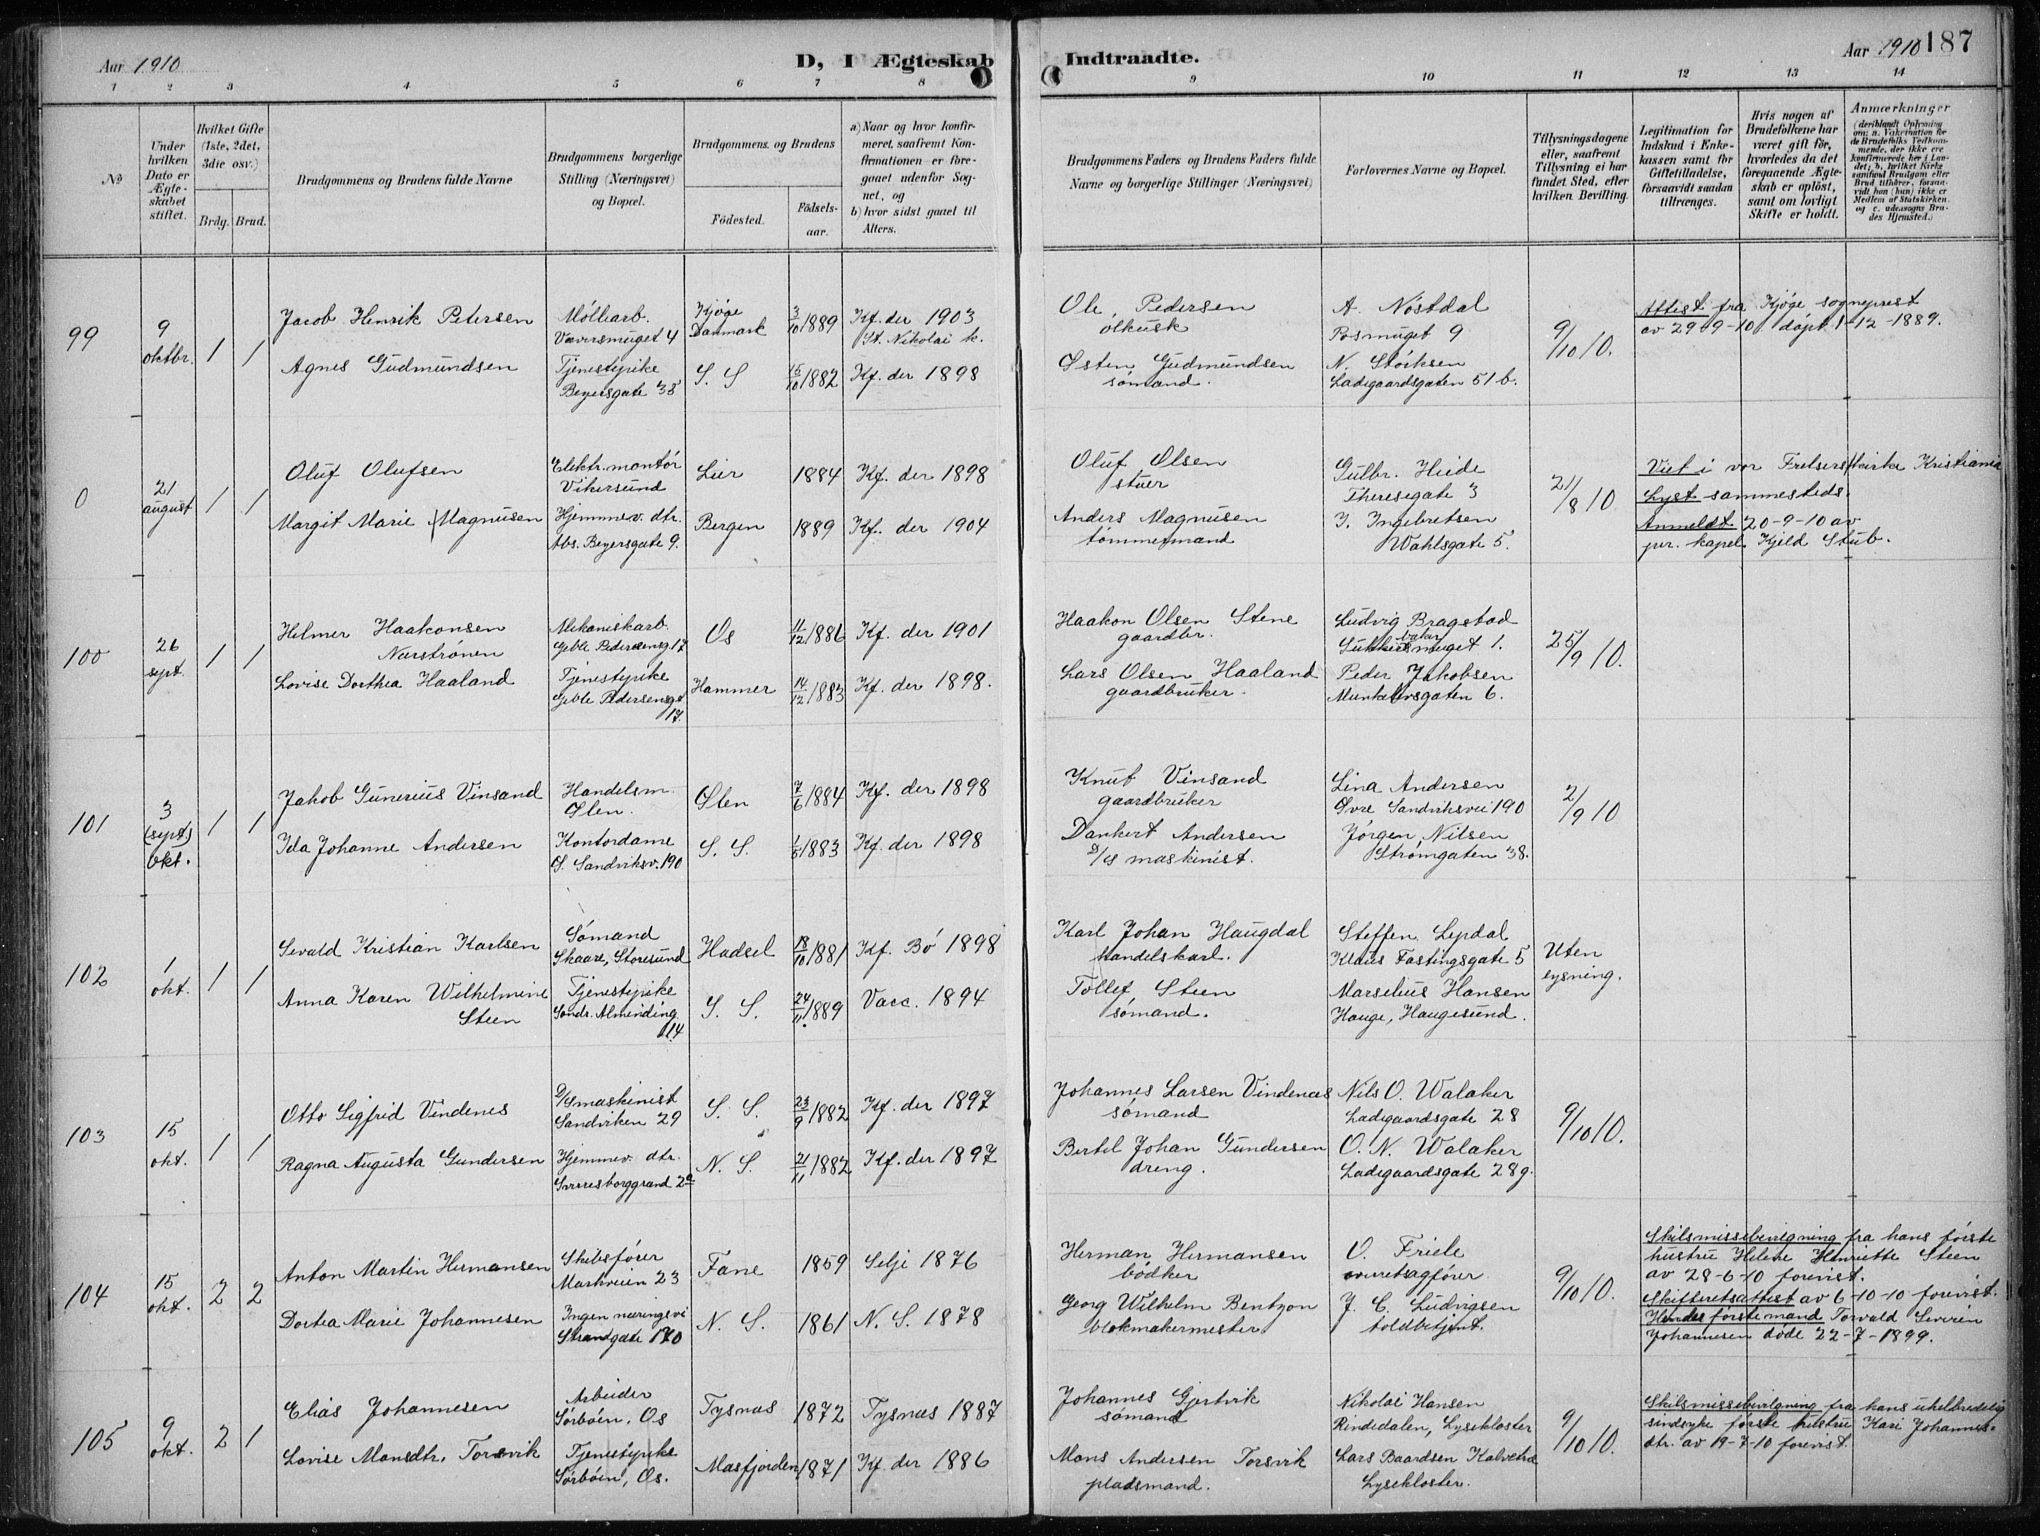 Aar 1910
D, I Ægteskab Indtraadte.
Aar 1910 187
1 2 3 4 5 6 7 8 9 10 11 12 13 14
№
Under
hvilken
Dato er
Ægte-
skabet
stiftet.
Hvilket Gifte
(1ste, 2det,
3die osv.)
Brdg. Brud.
Brudgommens og Brudens fulde Navne
Brudgommens borgerlige
Stilling (Næringsvei)
og Bopæl.
Brudgommens og Brudens
Fødested.
Fødsels-
aar.
a) Naar og hvor konfir-
meret, saafremt Kon-
firmationen er fore-
gaaet udenfor Sog-
net, og
b) hvor sidst gaaet til
Alters.
Brudgommens Faders og Brudens Faders fulde
Navne og borgerlige Stillinger (Næringsvei)
Forlovernes Navne og Bopæl.
Tillysningsdagene
eller, saafremt
Tillysning ei har
fundet Sted, efter
hvilken Bevilling.
Legitimation for
Indskud i Enke-
kassen samt for
Giftetilladelse,
forsaavidt saadan
tiltrænges.
Hvis nogen af
Brudefolkene har
været gift før,
hvorledes da det
foregaaende Ægte-
skab er opløst,
samt om lovligt
Skifte er holdt.
Anmærkninger
(deriblandt Oplysning
om: a. Vakcination for
de Brudefolks Vedkom-
mende, der ikke ere
konfirmerede her i Lan-
det; b. hvilket Kirke-
samfund Brudgom eller
Brud tilhører, forsaa-
vidt han (hun) ikke er
Medlem af Statskirken,
og c. udensogns Bru-
des Hjemsted.)
99
9
oktbr.
1 1
Jacob Henrik Petersen
Møllearb.
Væversmuget 4
Kjøge
Danmark
3/10 1889
Kf. der 1903
St. Nikolai k.
Ole Pedersen
ølkusk
A. Nøstdal
Posmuget 9
9/10 10.
Attest fra Kjøge sogneprest
av 29-9-10, døpt 1-12-1889.
Agnes Gudmundsen
Tjenestepike
Beyersgate 33
S. S
15/10 1882
Kf. der 1898
Østen Gudmundsen
sømand.
N. Størksen
Ladegaardsgaten 51 b.
0
21
august
1 1
Oluf Olufsen
Elektr. montør
Vikersund
Lier
1884
Kf. der 1898
Oluf Olsen
stuer
Gulbr. Heide
Theresegate 3
21/8 10
Viet i vor Frelsers kirke Kristiania
Lyst sammesteds.
Margit Marie Magnusen
Hjemmev. dtr.
Abs. Beyersgate 9.
Bergen
1889
Kf. der 1904
Anders Magnusen
tømmermand
J. Ingebretsen
Wahlsgate 5.
Anmeldt 20-9-10 av
per. kapel. Kjeld Stub.
100
26
sept.
1 1
Helmer Haakonsen
Nerstrønen
Mekaniskarb.
Geble Pedersensg. 17
Os
11/12 1886
Kf. der 1901
Haakon Olsen Stene
gaardbr.
Ludvig Bragstad
Sukkerbakermuget 1.
25/9 10.
Lovise Dorthea Haaland
Tjenestepike
Geble Pedersensgt
17.
Hammer
14/12 1883
Kf. der 1898.
Lars Olsen Haaland
gaardbruker.
Peder Jakobsen
Munkelivsgaten 6.
101
3
(sept)
okt.
1 1
Jakob Gunerius Vinsand
Handelsm.
Ølen.
Ølen
7/6 1884
Kf. der 1898
Knut Vinsand
gaardbruker
Lina Andersen
Øvre Sandviksvei 190
2/9 10
Ida Johanne Andersen
Kontordame
Ø. Sandviksv. 190
S. S.
1/5 1883
Kf. der 1898
Dankert Andersen
D/S maskinist.
Jørgen Nilsen
Strømgaten 38.
102
1
okt.
1 1
Sevald Kristian Karlsen
Sømand
Skaare, Storesund
Hadsel
18/10 1881
Kf. Bø 1898
Karl Johan Haugdal
handelskarl.
Steffen Lepdal
Klaus Fastingsgate 5
Uten
lysning.
Anna Karen Wilhelmine
Steen
Tjenestepike
Søndr. Almending
14
S. S.
24/11 1889
Vacc. 1894
Tollef Steen
sømand.
Marselius Hansen
Hauge, Haugesund.
103
15
okt.
1 1
Otto Sigfrid Vindenes
D/Smaskinist
Sandviken 29
S. S.
23/9 1882
Kf. der 1897
Johannes Larsen Vindenæs
sømand
Nils O. Walaker
Ladegaardsgate 28
9/10 10.
Ragna Augusta Gundersen
Hjemmev. dtr.
Sverresborggrand 2a
N. S.
21/11 1882
Kf. der 1897
Bertel Johan Gundersen
dreng.
O. N. Walaker
Ladegaardsgate 28 g.
104
15
okt.
2 2
Anton Martin Hermansen
Skibsfører
Markveien 23
Fane
1859
Selje 1876
Herman Hermansen
bødker
O. Friele
overretsagfører
9/10 10.
Skilsmissebevilgning fra hans første
hustru Helene Henriette Steen
av 28-6-10 forevist.
Skifteretsattest av 6-10-10 forevist.
Dortea Marie Johannesen
Ingen næringsvei
Strandgate 170
N. S.
1861
N. S. 1878
Georg Wilhelm Bentzon
blokmakermester
J. C. Ludvigsen
toldbetjent.
Hendes første mand Torvald Severin
Johannesen døde 22-7-1899.
105
9
okt.
2 1
Elias Johannesen
Arbeider
Sørbøen, Os
Tysnæs
1872
Tysnæs 1887
Johannes Gjertvik
sømand
Nikolai Hansen
Rindedalen, Lysekloster
9/10 10.
Skilsmissebevilgning fra hans uhelbredelig
sindsyke første hustru Kari Johannes-
dtr. av 19-7-10 forevist.
Lovise Monsdtr. Torsvik
Tjenestepike
Sørbøen, Os.
Masfjorden
1871
Kf. der 1886
Mons Andersen Torsvik
pladsmand.
Lars Baardsen Kalvetræ
Lysekloster.